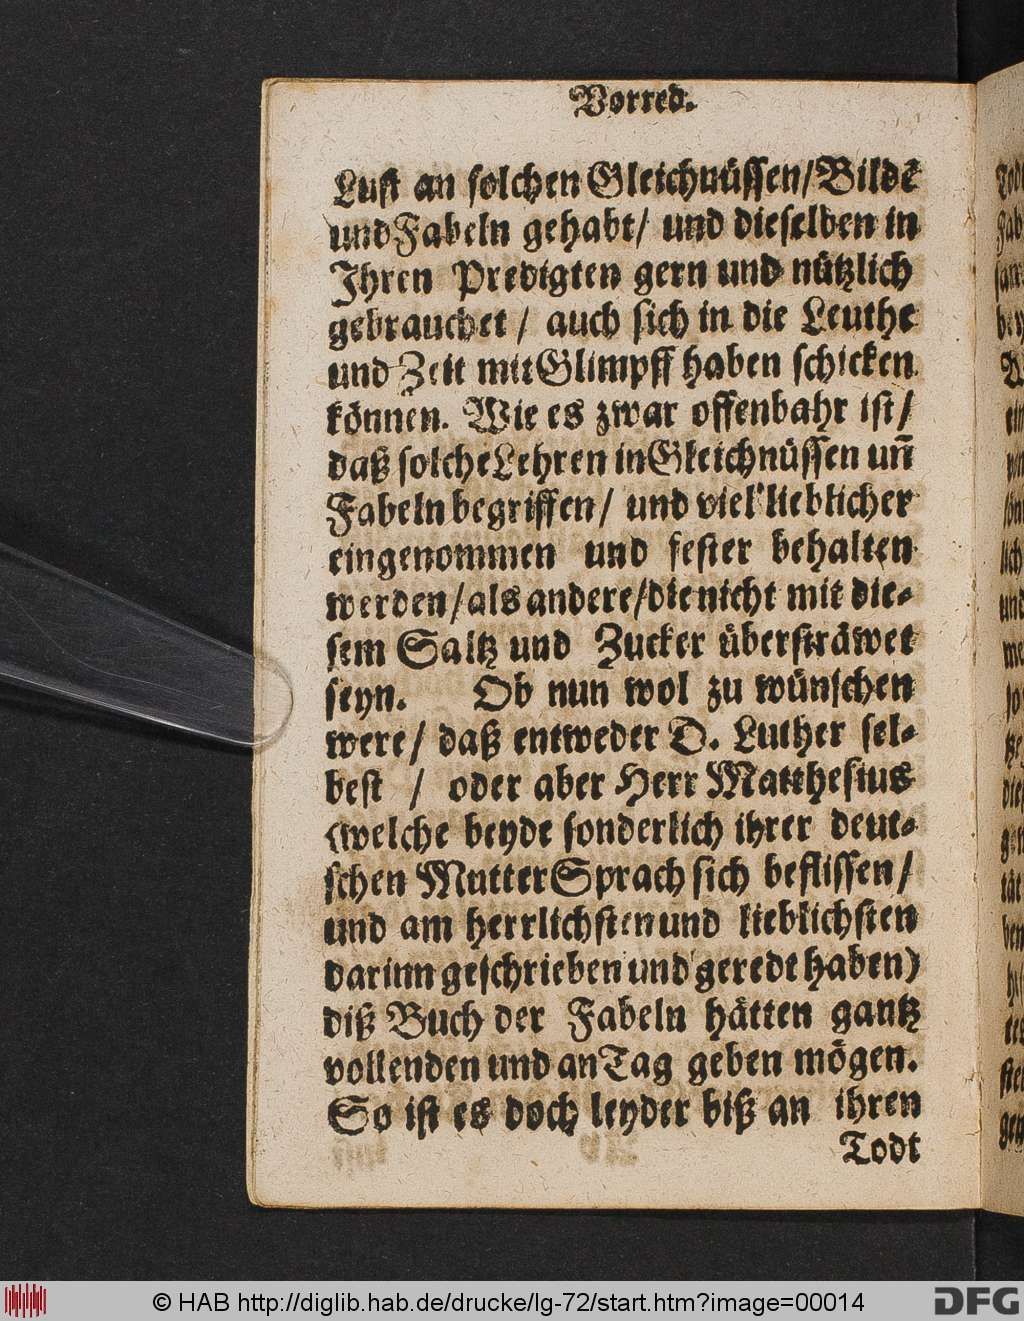 Vorred.
Lust an solchen Gleichnüssen/Bildē
und Fabeln gehabt/ und dieselben in
Ihren Predigten gern und nützlich
gebrauchet / auch sich in die Leuthe
und Zeit mit Glimpff haben schicken
können. Wie es zwar offenbahr ist/
daß solche Lehren in Gleichnüssen uñ
Fabeln begriffen/ und viel lieblicher
eingenommen und fester behalten
werden/als andere/die nicht mit die-
sem Saltz und Zucker übersträwet
seyn. Ob nun wol zu wünschen
were/ daß entweder D. Luther sel-
best / oder aber Herr Matthesius
(welche beyde sonderlich ihrer deut-
schen Mutter Sprach sich beflissen/
und am herrlichsten und lieblichsten
darinn geschrieben und geredt haben)
diß Buch der Fabeln hätten gantz
vollenden und an Tag geben mögen.
So ist es doch leyder biß an ihren
Todt
© HAB http://diglib.hab.de/drucke/lg-72/start.htm?image=00014
DFG